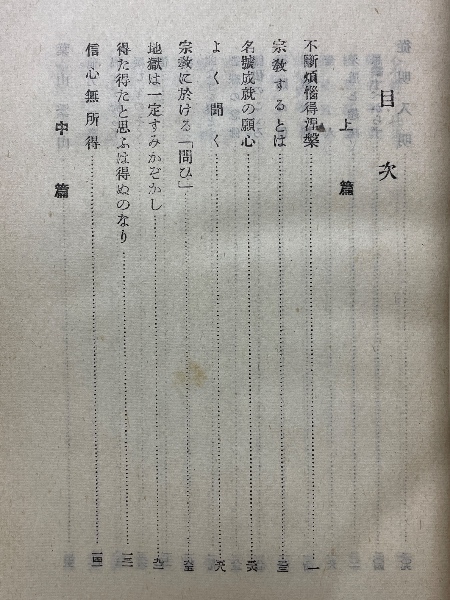 目次
上篇
不斷煩惱得涅槃……一
宗教するとは
名號成就の願心
よく聞く
宗教に於ける「問ひ」
地獄は一定すみかぞかし
得た得たと思ふは得ぬのなり
信心無所得
中篇